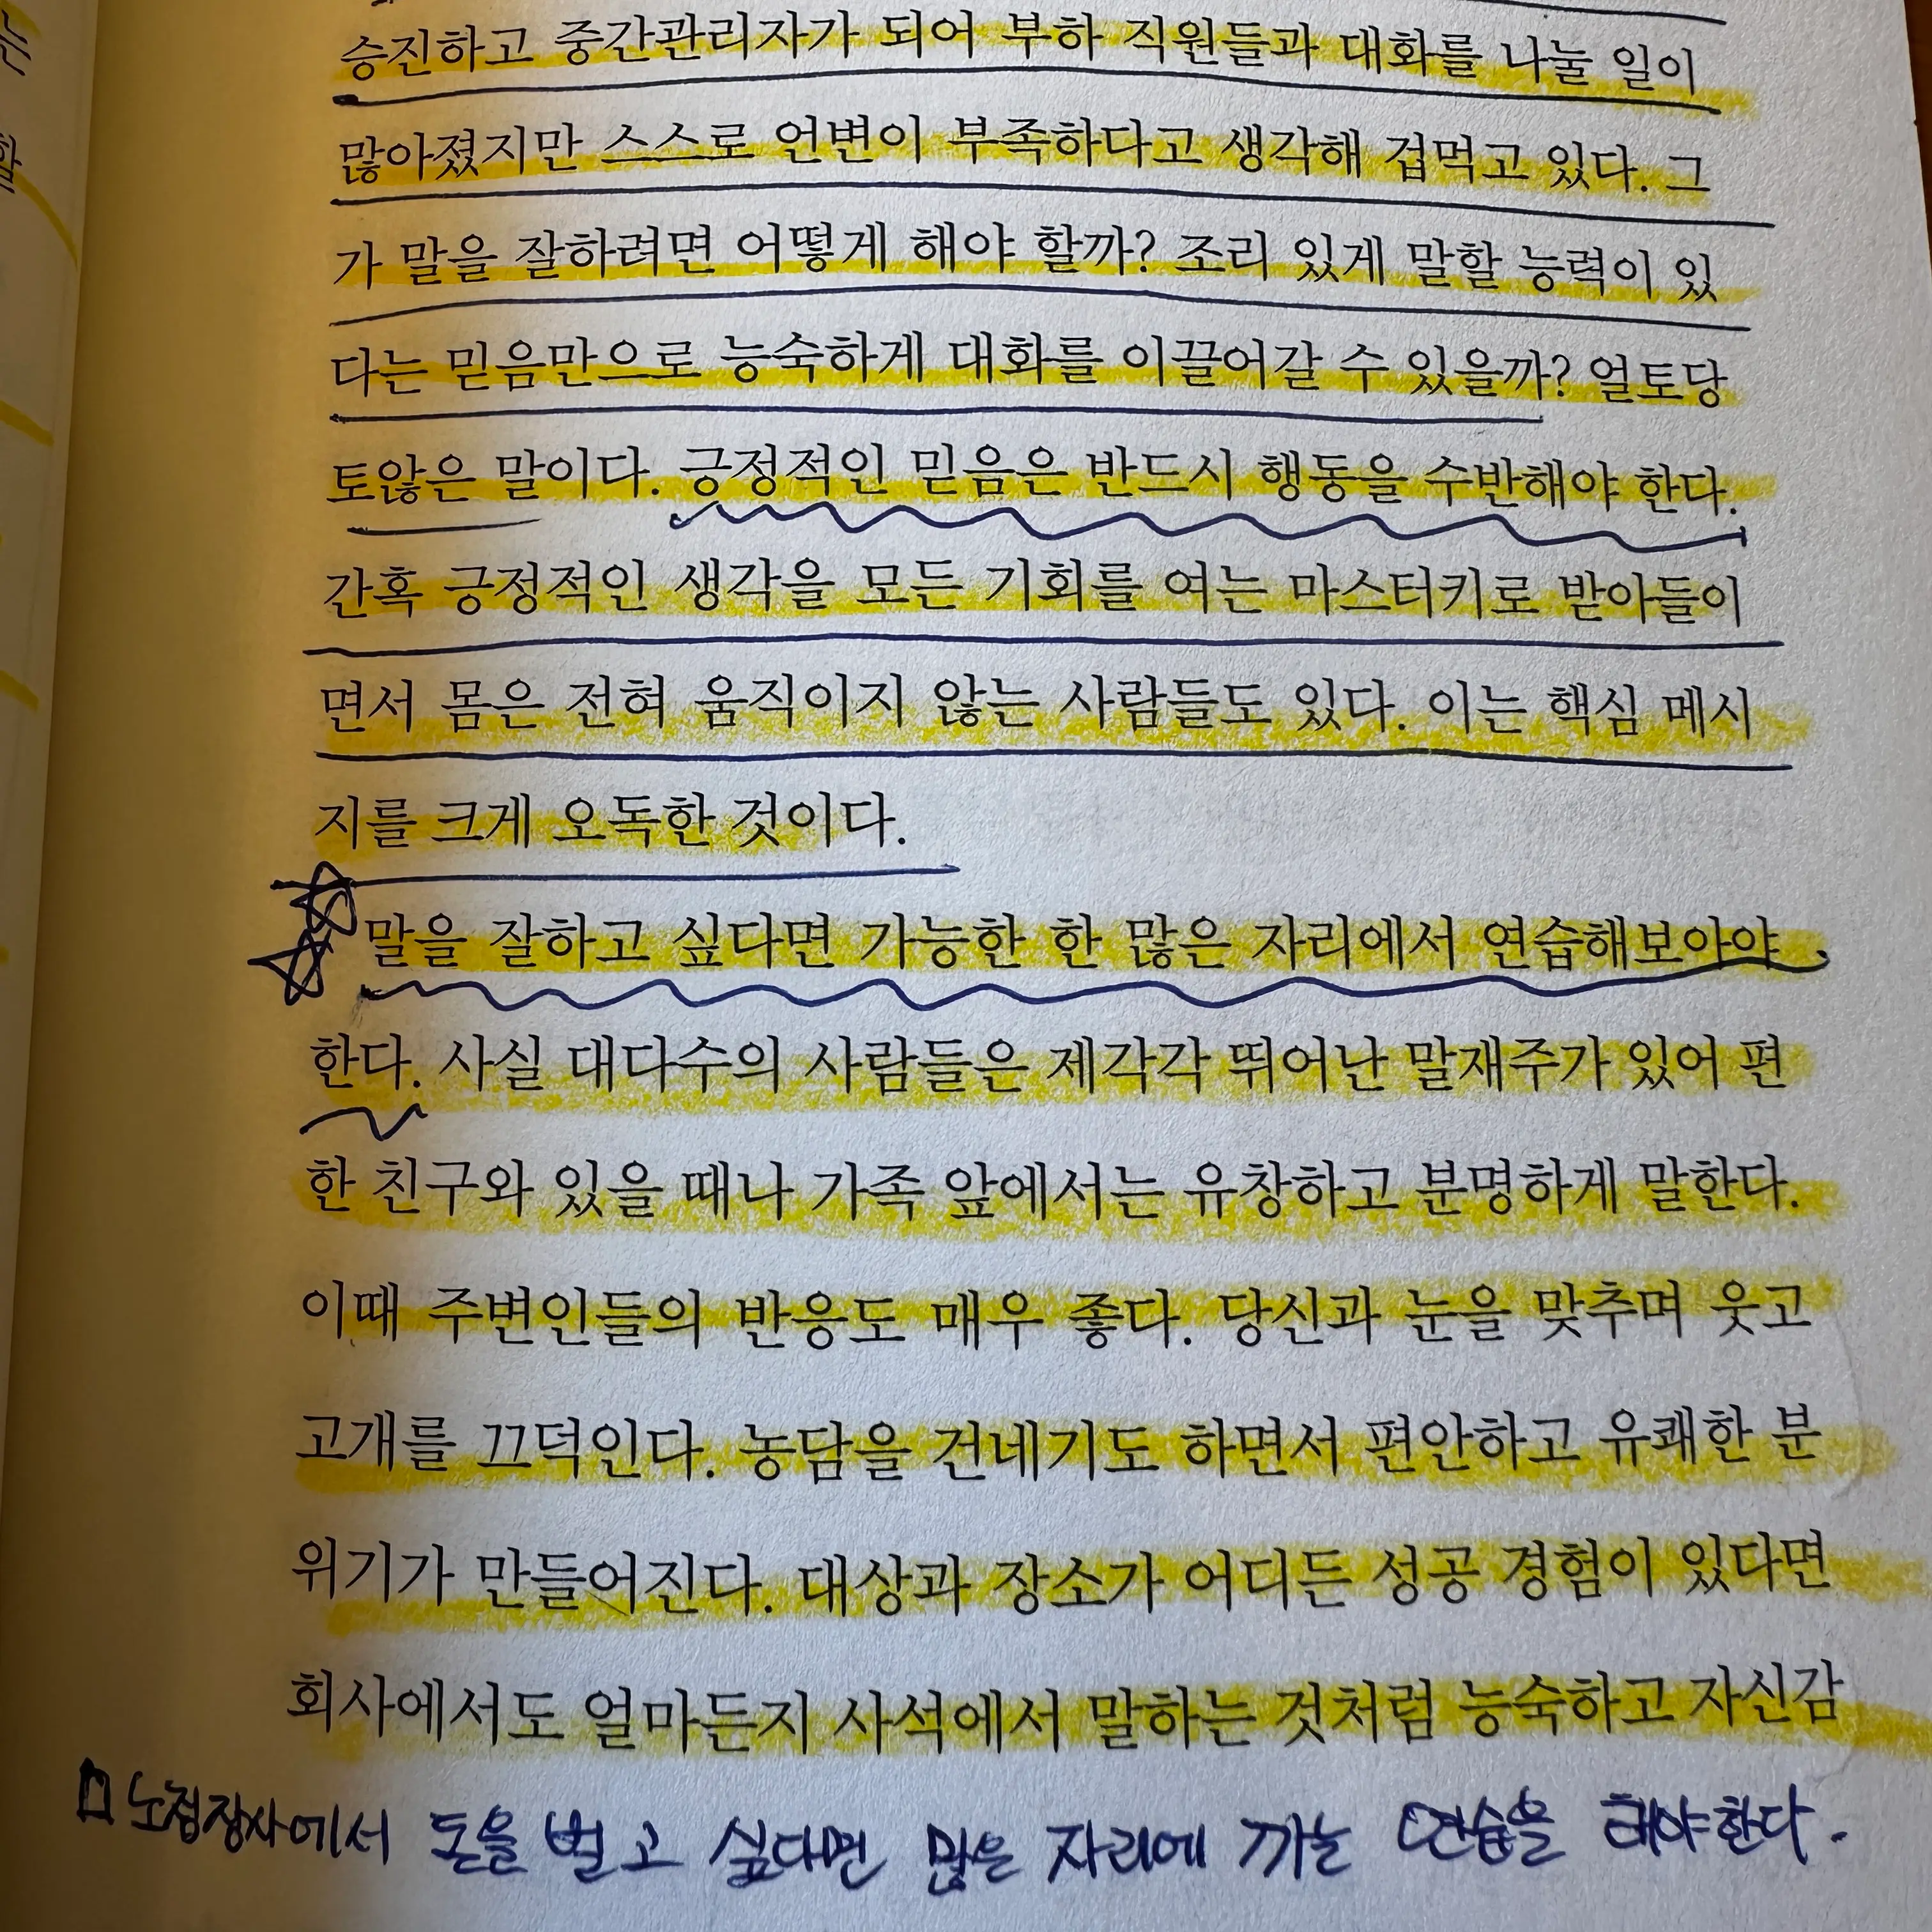 는
할
승진하고 중간관리자가 되어 부하 직원들과 대화를 나눌 일이
많아졌지만 스스로 언변이 부족하다고 생각해 겁먹고 있다. 그
가 말을 잘하려면 어떻게 해야 할까? 조리 있게 말할 능력이 있
다는 믿음만으로 능숙하게 대화를 이끌어갈 수 있을까? 얼토당
토않은 말이다. 긍정적인 믿음은 반드시 행동을 수반해야 한다.
간혹 긍정적인 생각을 모든 기회를 여는 마스터키로 받아들이
면서 몸은 전혀 움직이지 않는 사람들도 있다. 이는 핵심 메시
지를 크게 오독한 것이다.
말을 잘하고 싶다면 가능한 한 많은 자리에서 연습해보아야
한다. 사실 대다수의 사람들은 제각각 뛰어난 말재주가 있어 편
한 친구와 있을 때나 가족 앞에서는 유창하고 분명하게 말한다.
이때 주변인들의 반응도 매우 좋다. 당신과 눈을 맞추며 웃고
고개를 끄덕인다. 농담을 건네기도 하면서 편안하고 유쾌한 분
위기가 만들어진다. 대상과 장소가 어디든 성공 경험이 있다면
회사에서도 얼마든지 사석에서 말하는 것처럼 능숙하고 자신감
노점장사에서 돈을 벌고 싶다면 많은 자리에 까는 연습을 해야한다.